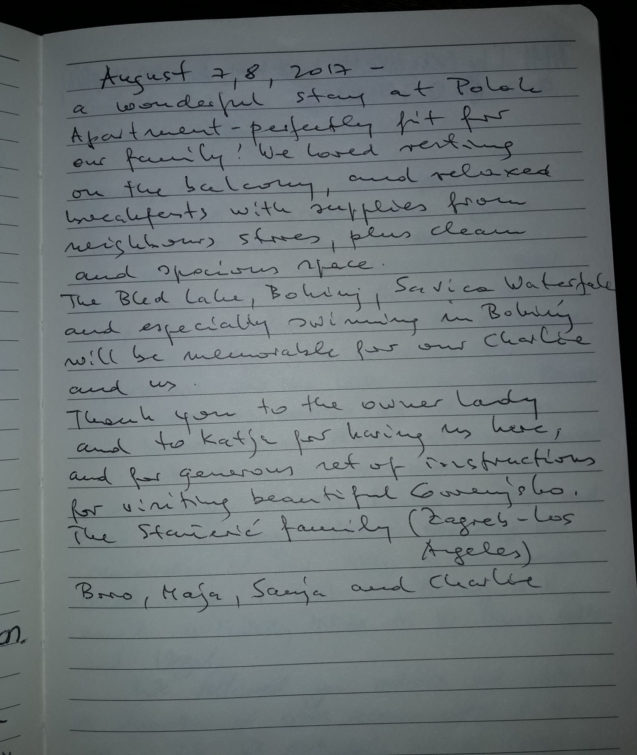 August 7, 8, 2017 –
a wonderful stay at Polak
Apartment – perfectly fit for
our family! We loved resting
on the balcony, and relaxed
breakfasts with supplies from
neighbours stores, plus clean
and spacious space.
The Bled Lake, Bohinj, Savica Waterfall
and especially swimming in Bohinj
will be memorable for our Charlie
and us.
Thank you to the owner lady
and to Katja for having us here,
and for generous set of instructions
for visiting beautiful Gorenjsko.
The family (Zagreb – Los
Angeles)
Maja, Sanja and Charlie
on.